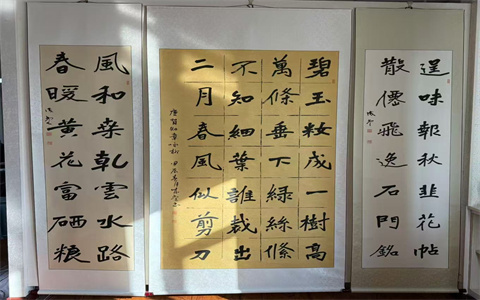 逞味報秋韭花帖
散僊飛逸石門銘
碧玉粧成一樹高
萬條垂下緑絲條
不知細葉誰裁出
二月春風似剪刀
唐賀知章詠柳 甲辰
風和桑乾雲水路
春暖黄花富硒糧